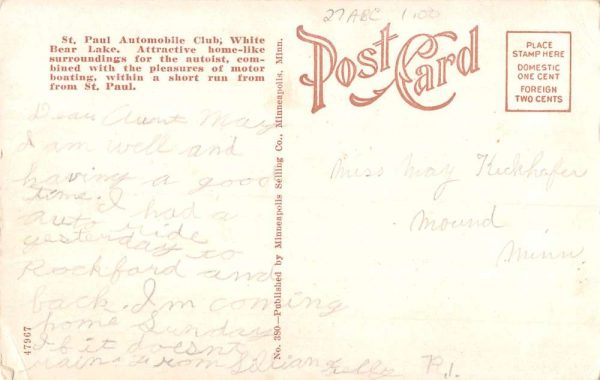 27 ABC 1.00
St. Paul Automobile Club, White
Bear Lake. Attractive home-like
surroundings for the autoist, com-
bined with the pleasures of motor
boating, within a short run from
from St. Paul.
Post Card
PLACE
STAMP HERE
DOMESTIC
ONE CENT
FOREIGN
TWO CENTS
No. 380—Published by Minneapolis Selling Co., Minneapolis, Minn.
47967
Dear Aunt May
I am well and
having a good
time. I had a
auto ride
yesterday to
Rockford and
back. Im coming
home Sunday
if it doesnt
rain. From Lillian
Miss May Kickhafer
Mound
Minn